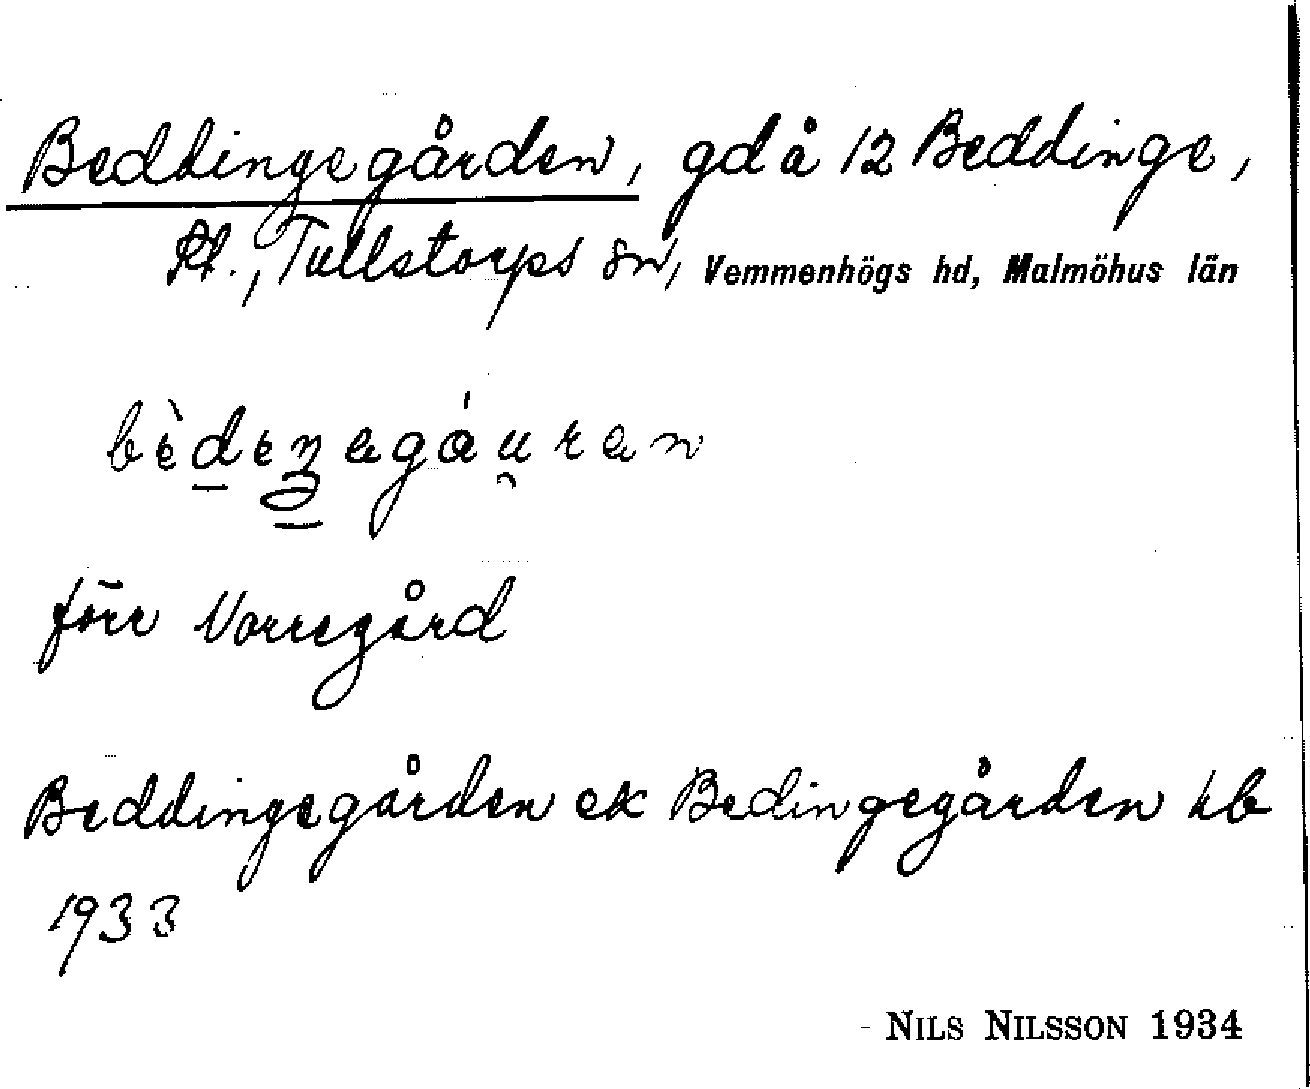 Beddingegården, gd å 12 Beddinge,
Kl., Tullstorps sn, Vemmenhögs hd, Malmöhus län
förr Norregård
Beddingegården ek Bedingegården kb
1933
- NILS NILSSON 1934